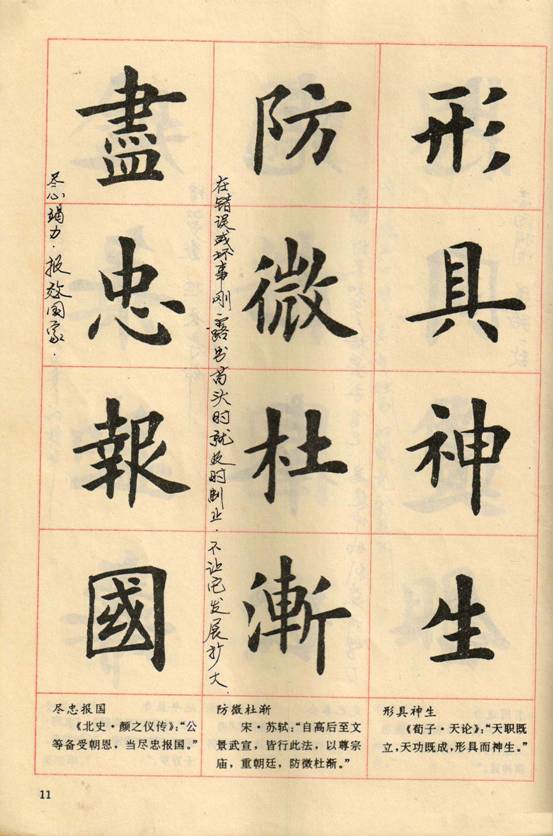 形具神生
防微杜漸
在错误或坏事刚露出苗头时就及时制止，不让它发展扩大．
盡忠報國
尽心竭力．报效国家．
尽忠报国
《北史·颜之仪传》：“公
等备受朝恩，当尽忠报国。”
防微杜渐
宋·苏轼：“自高后至文
景武宣，皆行此法，以尊宗
庙，重朝廷，防微杜渐。”
形具神生
《荀子·天论》：“天职既
立，天功既成，形具而神生。”
11